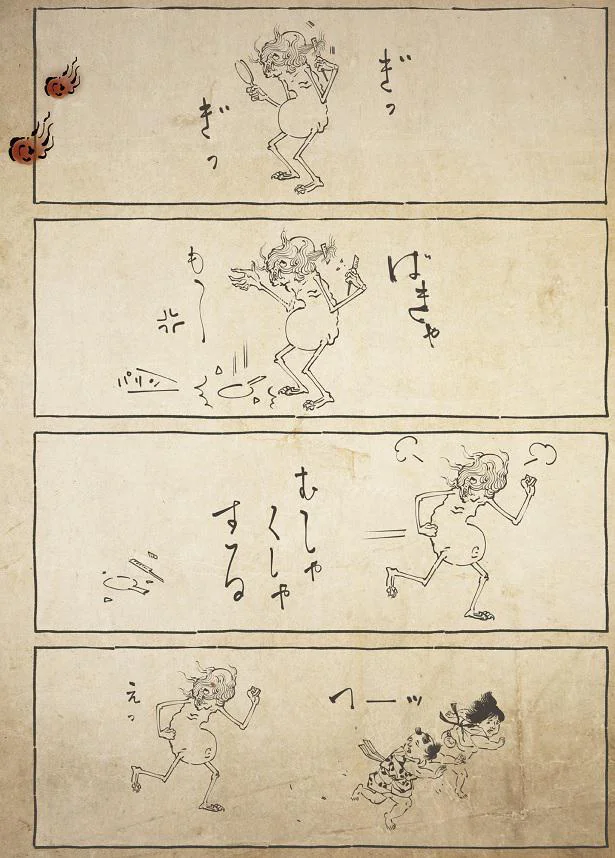 ぎっ
ぎっ
ばきゃ
も〜
パリン
むしゃ
くしゃ
する
へーッ
えっ